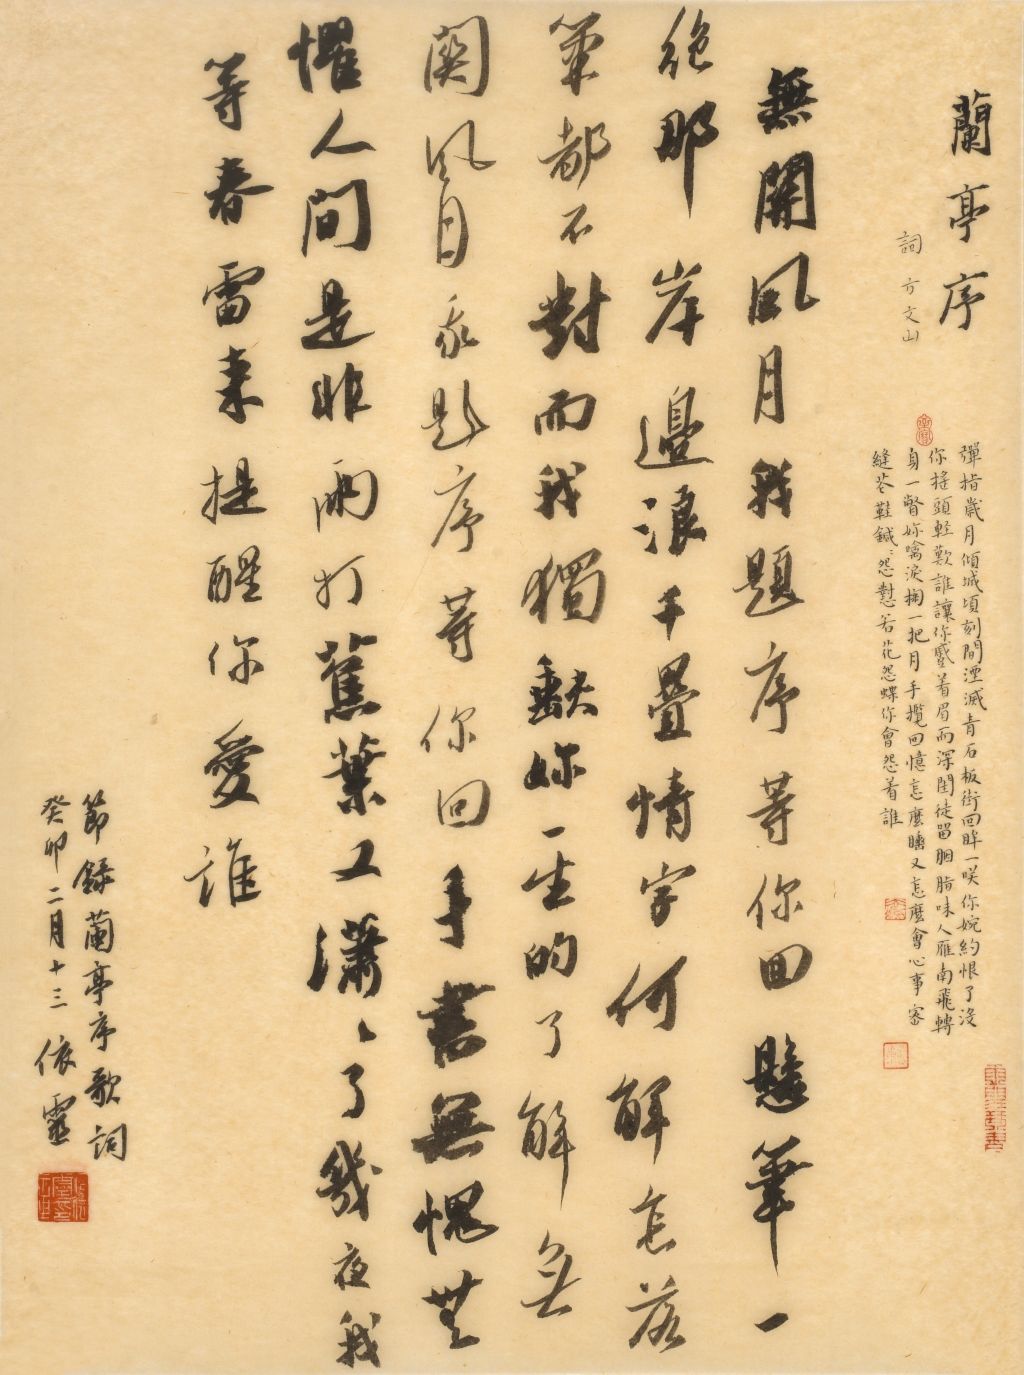 蘭亭序
詞 方文山
彈指歲月傾城頃刻間湮滅青石板街回眸一咲你婉約恨了沒
你搖頭輕歎誰讓你蹙着眉而深閨徒留胭脂味人雁南飛轉
身一瞥妳噙淚掬一把月手攬回憶怎麼睡又怎麼會心事密
縫花鞋鍼針怨懟若花怨蝶你會怨着誰
無關風月我題序等你回懸筆一
絕那岸邊浪千疊情字何解怎落
筆都不對而我獨缺妳一生的了解無
關風月我題序等你回手書無愧無
懼人間是非雨打蕉葉又瀟瀟了幾夜我
等春雷來提醒你愛誰
節錄蘭亭序歌詞
癸卯二月十三 依靈